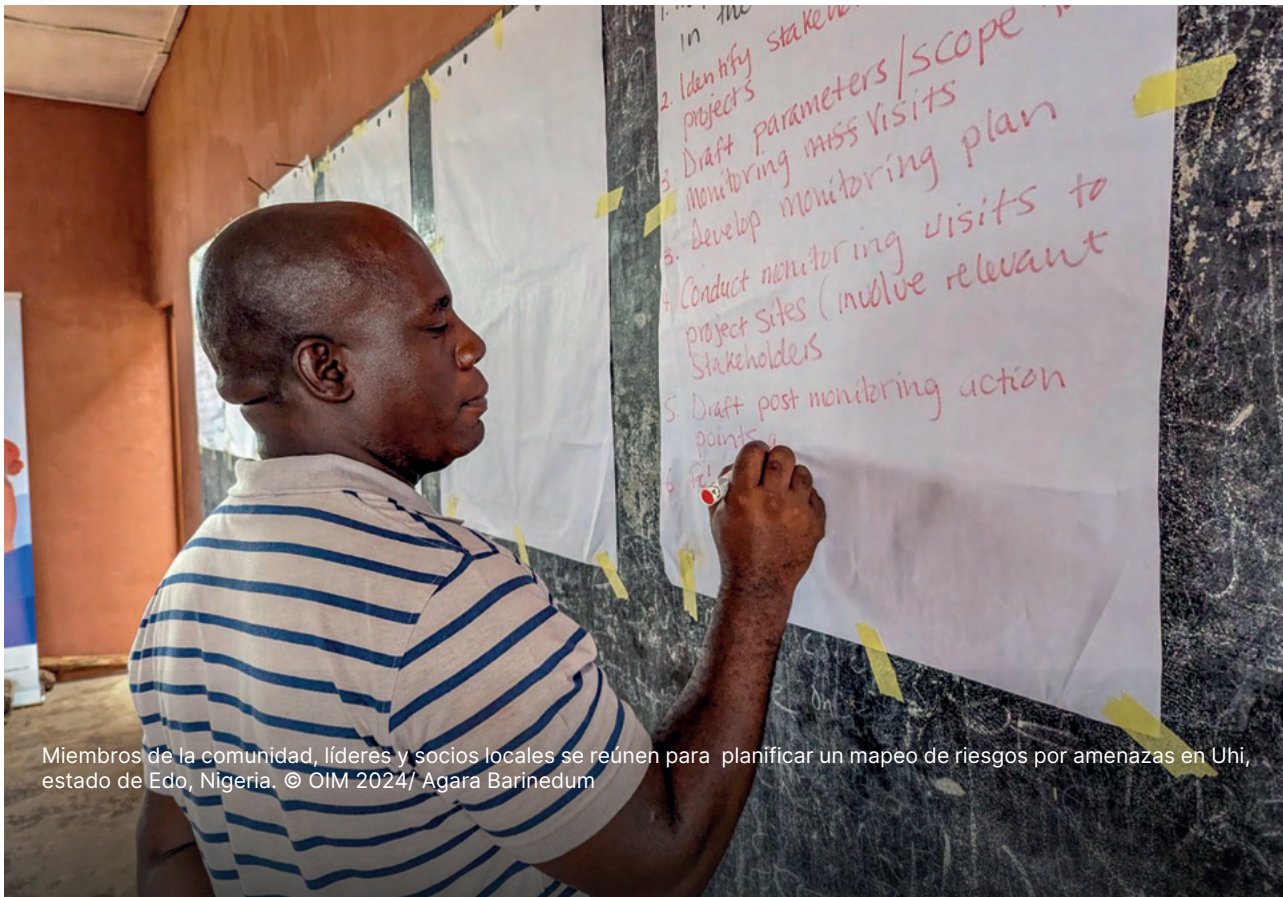 in the
2. Identify
projects
3. Draft parameters/scope
monitoring visits
3. Develop monitoring plan
4. Conduct monitoring visits to
project sites (involve relevant
stakeholders
5. Draft post monitoring action
points
6
Miembros de la comunidad, líderes y socios locales se reúnen para planificar un mapeo de riesgos por amenazas en Uhi,
estado de Edo, Nigeria. © OIM 2024/ Agara Barinedum